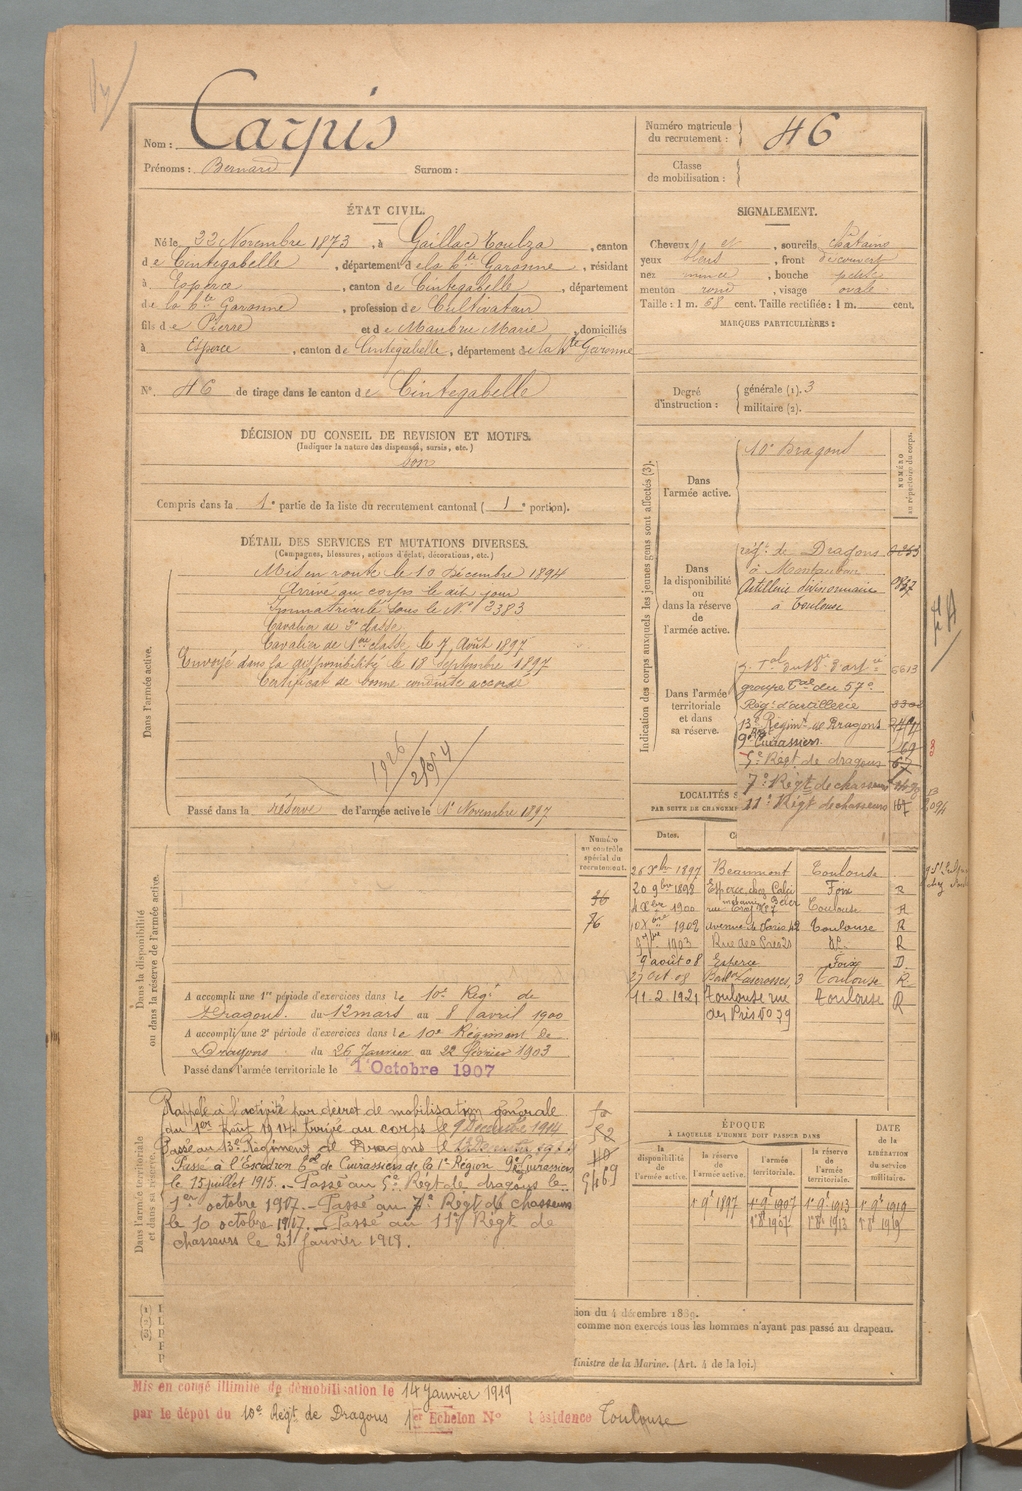 Nom : Carpis
Prénoms : Bernard Surnom :
Numéro matricule du recrutement : 46
Classe de mobilisation :
ÉTAT CIVIL.
Né le 22 Novembre 1873, à Gaillac Toulza, canton
de Cintegabelle, département de la Hte Garonne, résidant
à Esperce, canton de Cintegabelle, département
de la Hte Garonne, profession de Cultivateur
fils de Pierre et de Maubru Marie, domiciliés
à Esperce, canton de Cintegabelle, département de la Hte Garonne
N° 46 de tirage dans le canton de Cintegabelle
SIGNALEMENT.
Cheveux et, sourcils châtains
yeux bleus, front découvert
nez mince, bouche petite
menton rond, visage ovale
Taille : 1 m. 68 cent. Taille rectifiée : 1 m. cent.
MARQUES PARTICULIÈRES :
Degré d'instruction : générale (1). 3
militaire (2).
DÉCISION DU CONSEIL DE REVISION ET MOTIFS.
(Indiquer la nature des dispenses, sursis, etc.)
bon
Compris dans la 1e partie de la liste du recrutement cantonal ( 1e portion).
DÉTAIL DES SERVICES ET MUTATIONS DIVERSES.
(Campagnes, blessures, actions d'éclat, décorations, etc.)
Dans l'armée active.
Mis en route le 10 Décembre 1894
Arrivé au corps le dit jour
Immatriculé sous le N° 3383
Cavalier de 2e classe
Cavalier de 1ere classe le 7 Août 1897
Envoyé dans la disponibilité le 18 Septembre 1897
Certificat de bonne conduite accordé
1926/2154
Passé dans la réserve de l'armée active le 1er Novembre 1897
Indication des corps auxquels les jeunes gens sont affectés (3).
NUMÉRO au répertoire du corps.
Dans l'armée active.
10e Dragons
Dans la disponibilité ou dans la réserve de l'armée active.
régt de Dragons
à Montauban
Artillerie divisionnaire
à Toulouse
Dans l'armée territoriale et dans sa réserve.
du 18e d'artie 6613
groupe Tal du 57e
Régt d'artillerie
13e Régimt de Dragons
9e Cuirassiers
5e Régt de dragons
7e Régt de chasseurs
11e Régt de chasseurs
LOCALITÉS S
PAR SUITE DE CHANGEM
Dates.
26 Xbre 1897 Beaumont Toulouse
20 9bre 1898 Esperce, chez Foix R
4 Xbre 1900 Toulouse
1902 Avenue de Paris 42 Toulouse R
1903 Rue des Prés 29 R
9 août 08 Esperce Foix D
27 Oct 08 Bould Lascrosses, 3 Toulouse R
11-2-1921 Toulouse rue Toulouse R
des Prés N° 29
Dans la disponibilité ou dans la réserve de l'armée active.
Numéro au contrôle spécial du recrutement.
36
76
A accompli une 1re période d'exercices dans le 10e Régt de
Dragons du 12 mars au 8 avril 1900
A accompli une 2e période d'exercices dans le 10e Régiment de
Dragons du 26 Janvier au 22 février 1903
Passé dans l'armée territoriale le 1er Octobre 1907
Dans l'armée territoriale et dans sa réserve.
Rappelé à l'activité par décret de mobilisation générale
du 1er Août 1914. Arrivé au corps le 9 Décembre 1914
Passé au 13e Régiment de Dragons le
Passé à l'Escadron de Cuirassiers de la 1e Région 9e Cuirassiers
le 15 juillet 1915. Passé au 5e Régt de dragons le
1er octobre 1917. Passé au 7e Régt de chasseurs
le 10 octobre 1917. Passé au 11e Régt de
chasseurs le 21 janvier 1918.
ÉPOQUE
À LAQUELLE L'HOMME DOIT PASSER DANS
la disponibilité de l'armée active.
la réserve de l'armée active.
l'armée territoriale.
la réserve de l'armée territoriale.
DATE de la LIBÉRATION du service militaire.
1er 9e 1897 1er 9e 1907 1er 9e 1913 1er 9e 1919
1er 8e 1907 1er 8e 1913 1er 8e 1919
(1)
(2)
(3)
ion du 4 décembre 1889.
comme non exercés tous les hommes n'ayant pas passé au drapeau.
Ministre de la Marine. (Art. 4 de la loi.)
Mis en congé illimité de démobilisation le 14 Janvier 1919
par le dépôt du 10e Régt de Dragons 1er Echelon N° Résidence Toulouse